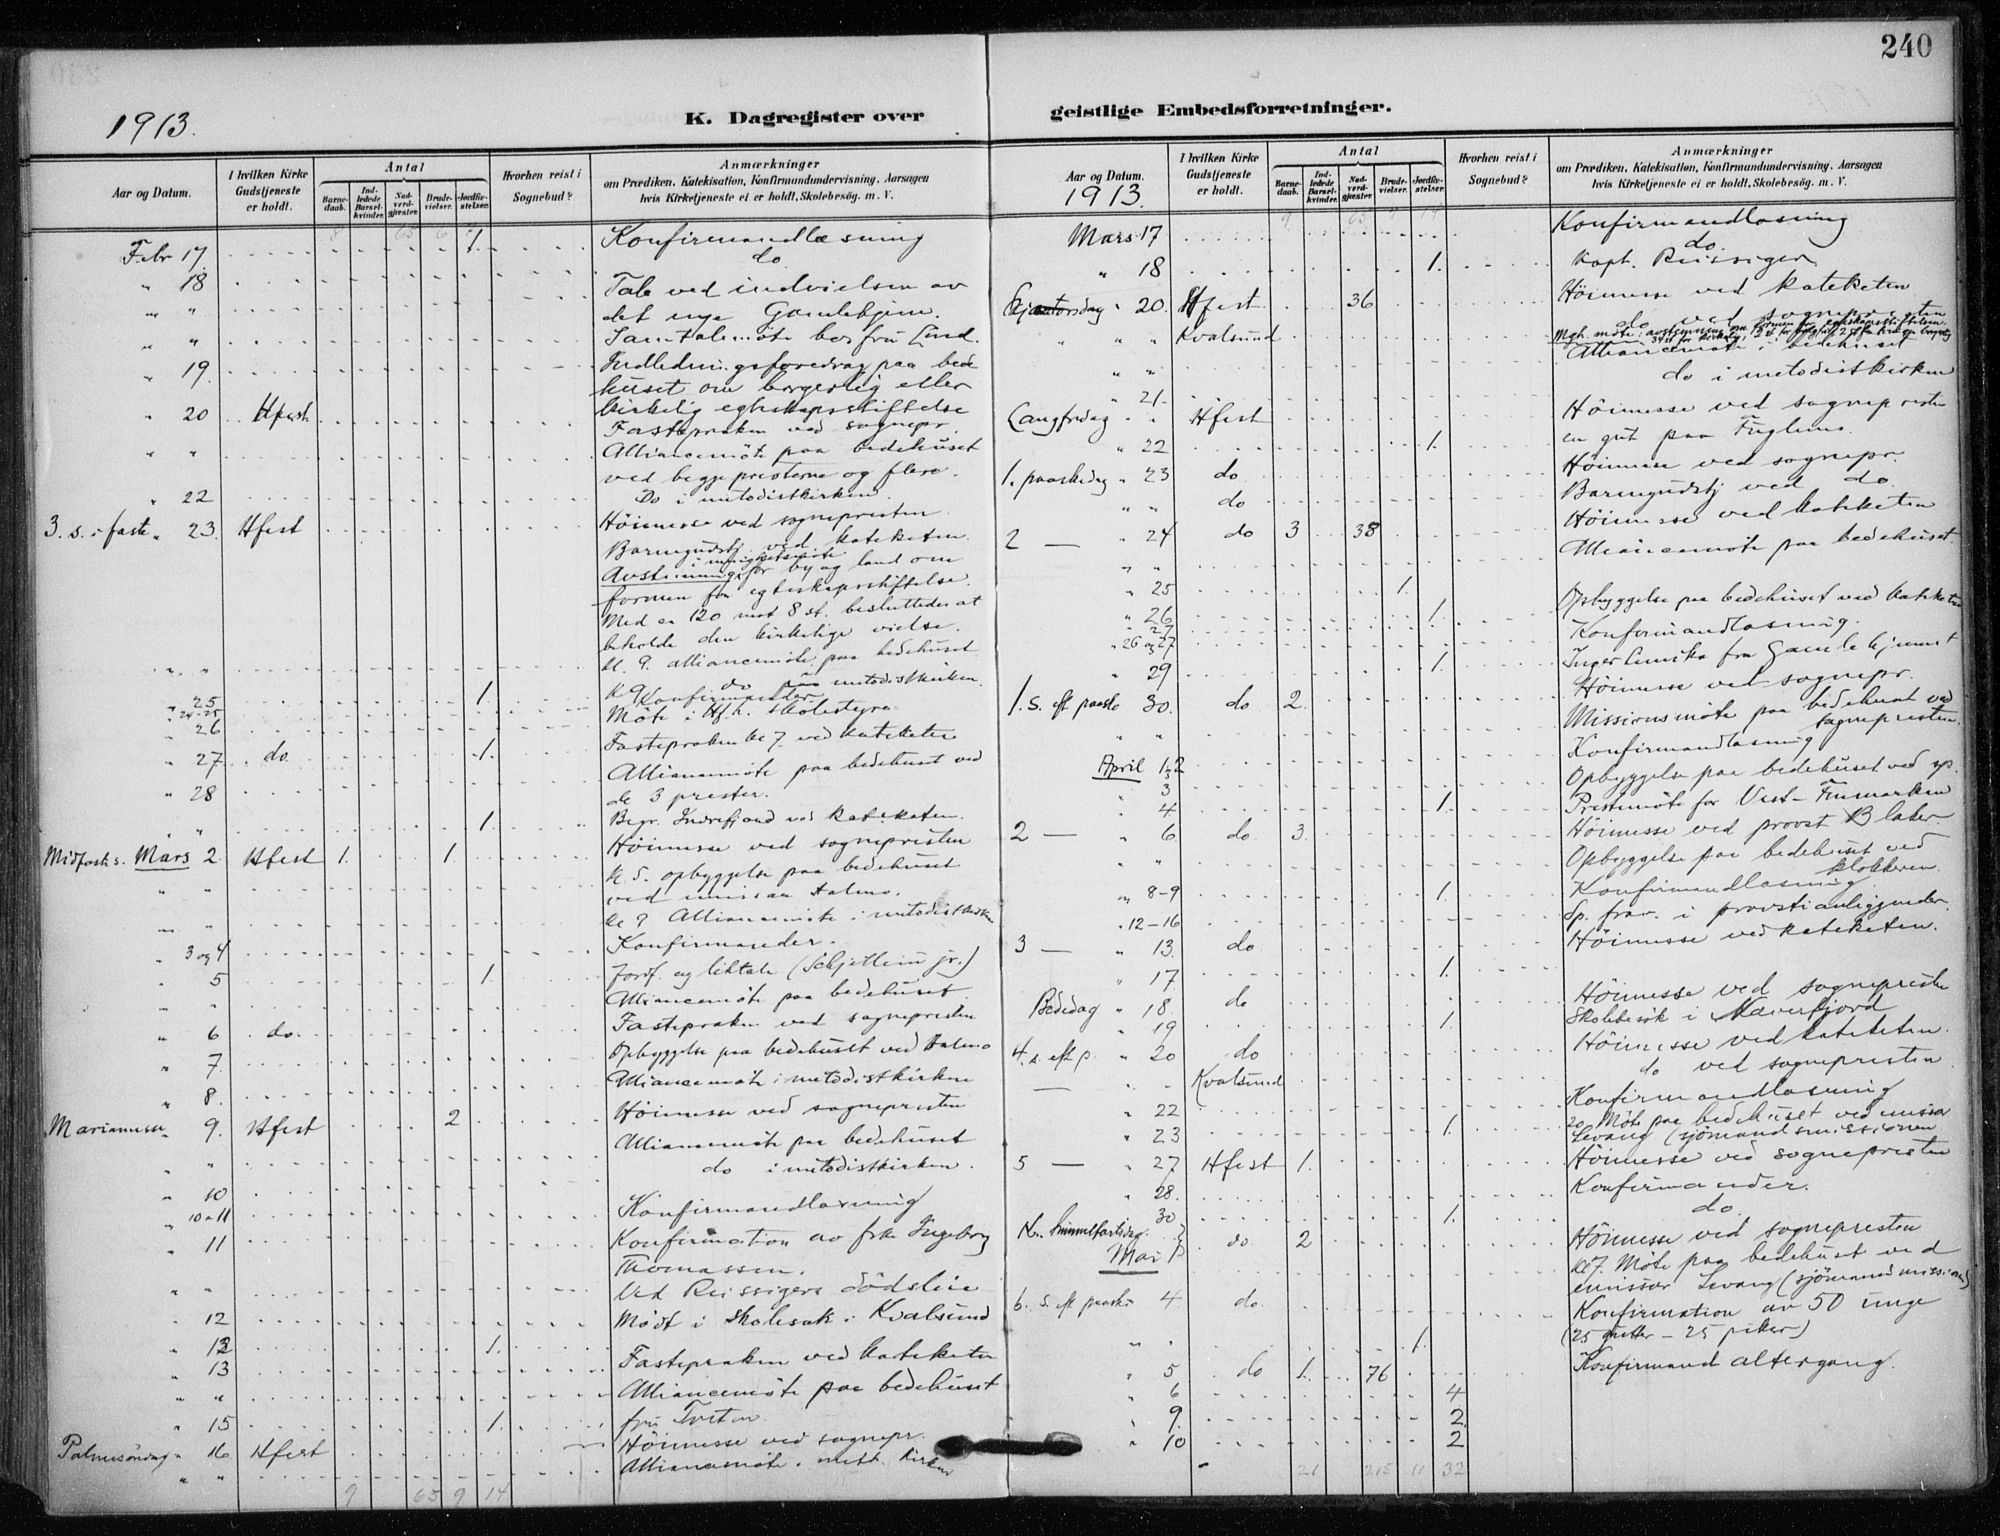 240
1913.
K. Dagregister over geistlige Embedsforretninger.
Aar og Datum.
I hvilken Kirke Gudstjeneste er holdt.
Antal
Barne-daab.
Ind-ledede Barsel-kvinder.
Nad-verd-gjæster.
Brude-vielser.
Jordfæ-stelser.
Hvorhen reist i Sognebud?
Anmærkninger
om Prædiken, Katekisation, Konfirmandundervisning, Aarsagen
hvis Kirketjeneste ei er holdt, Skolebesøg. m. V.
Febr 17. 1. Konfirmandlæsning
" 18 do
" " Tale ved indvielsen av
det nye Gamlehjem.
" " Samtalemöte hos fru Lund.
" 19. Indledningsforedrag paa bede
huset om borgerlig eller
kirkelig egteskapsstiftelse
" 20 Hfest Fastepræken ved sognepr.
" " Alliancemöte paa bedehuset
ved begge presterne og flere.
" 22 Do i metodistkirken.
3. s. i faste " 23. Hfest Höimesse ved sognepresten
Barnegudstj. ved kateketen.
i menighetsmöte
Avstemning for by og land om
formen for egteskapsstiftelse.
Med 120 mot 8 st. besluttedes at
beholde den kirkelige vielse.
" " kl. 9. alliancemöte paa bedehuset
do metodistkirken.
" 25 1. Konfirmander
" 24-25
" 26 Möte i Hfh. skolestyre
" 27 do 1. Fastepræken kl 7. ved kateketen
" 28 Alliancemöte paa bedehuset ved
de 3 prester.
" " 1. Begr. Indrefjord ved kateketen.
Midfastes. Mars 2 Hfest 1. 1. Höimesse ved sognepresten
" " kl. 5. opbyggelse paa bedehuset
ved emissær Halmo.
" " kl 9 Alliancemöte i metodistkirken
" 3 og 4 Konfirmander.
" 5 1. Jordf. og liktale (Schjetlein jr.)
" " Alliancemöte paa bedehuset.
" 6 do. Fastepræken ved sognepresten
" 7 Opbyggelse paa bedehuset ved Halmo
" 8. Alliancemöte i metodistkirken
Mariamesse " 9. Hfest 2 Höimesse ved sognepresten
" " Alliancemöte paa bedehuset
" 10 do i metodistkirken.
" 10 - 11 Konfirmandlæsning
" 11 Konfirmation av frk. Ingeborg
Thomassen.
" " Ved Reissigers dödsleie
" 12 Mödt i skolesak i Kvalsund
" 12 1.
" 13 Fastepræken ved kateketen
" " Alliancemöte paa bedehuset
" 15 1. fru
Palmesöndag " 16 Hfest Höimesse ved sognepr.
" " Alliancemöte i met. kirken
9 65 9 14
Aar og Datum.
1913.
I hvilken Kirke Gudstjeneste er holdt.
Antal
Barne-daab.
Ind-ledede Barsel-kvinder.
Nad-verd-gjæster.
Brude-vielser.
Jordfæ-stelser.
Hvorhen reist i Sognebud?
Anmærkninger
om Prædiken, Katekisation, Konfirmandundervisning, Aarsagen
hvis Kirketjeneste ei er holdt. Skolebesøg. m. V.
Mars 17 Konfirmandlæsning
do.
" 18 1. Kapt. Reissiger
Skjærtorsdag " 20. Hfest 36 Höimesse ved kateketen
" " Kvalsund do ved sognepresten
Mgh. möte: avstemning om formen for egteskapsstiftelsen.
" " Alliancemöte i bedehuset
do i metodistkirken
Langfredag " 21. Hfest Höimesse ved sognepresten
" 22 1. en gut paa Fuglenes.
1. paaskedag " 23 do Höimesse ved sognepr.
" " do Barnegudstj ved do.
2 — " 24 do 3 38 Höimesse ved kateketen
" " Alliancemöte paa bedehuset.
" 25 1.
" 26 1. Opbyggelse paa bedehuset ved kateketen
" 27
" 26 og 27 Konfirmandlæsning.
" 29 1. Inger Annika fra Gamlehjemmet
1. S. eft paaske 30. do 2. Höimesse ved sognepr.
" " Missionsmöte paa bedehuset ved
sognepresten.
April 1-2 Konfirmandlæsning
" 3 Opbyggelse paa bedehuset ved sp.
" 4 1. Prestemöte for Vest-Finmarken
2 — " 6 do 3. Höimesse ved provst Balke
" " Opbyggelse paa bedehuset ved
klokkeren.
" 8-9 1. Konfirmandlæsning.
" 12-16 Sp. frav. i provstianliggender.
3 — " 13. do Höimesse ved kateketen.
" 17 1.
Bededag " 18. do Höimesse ved sognepresten
" 19 1. Skolebesök i Næverfjord
4. s. eft p. " 20 do Höimesse ved kateketen.
— " " Kvalsund do ved sognepresten
" 22 Konfirmandlæsning
" 23 1. 20 Möte paa bedehuset ved emissær
Levang (sjömandsmissionen
5 — " 27 Hfest 1. Höimesse ved sognepresten
" 28. Konfirmander.
" 30 1. do
Kr. himmelfartsdag. Mai 1 do 2 Höimesse ved sognepresten
kl 7. Möte paa bedehuset ved
emissær Levang (sjömandsmissionen)
6. S. eft paaske 4 do. Konfirmation av 50 unge
(25 gutter – 25 piker)
" " 1.
" 5 do 1. 76 Konfirmand altergang.
" 6 4
" 9. 2
" 10 2
21 215 11 32